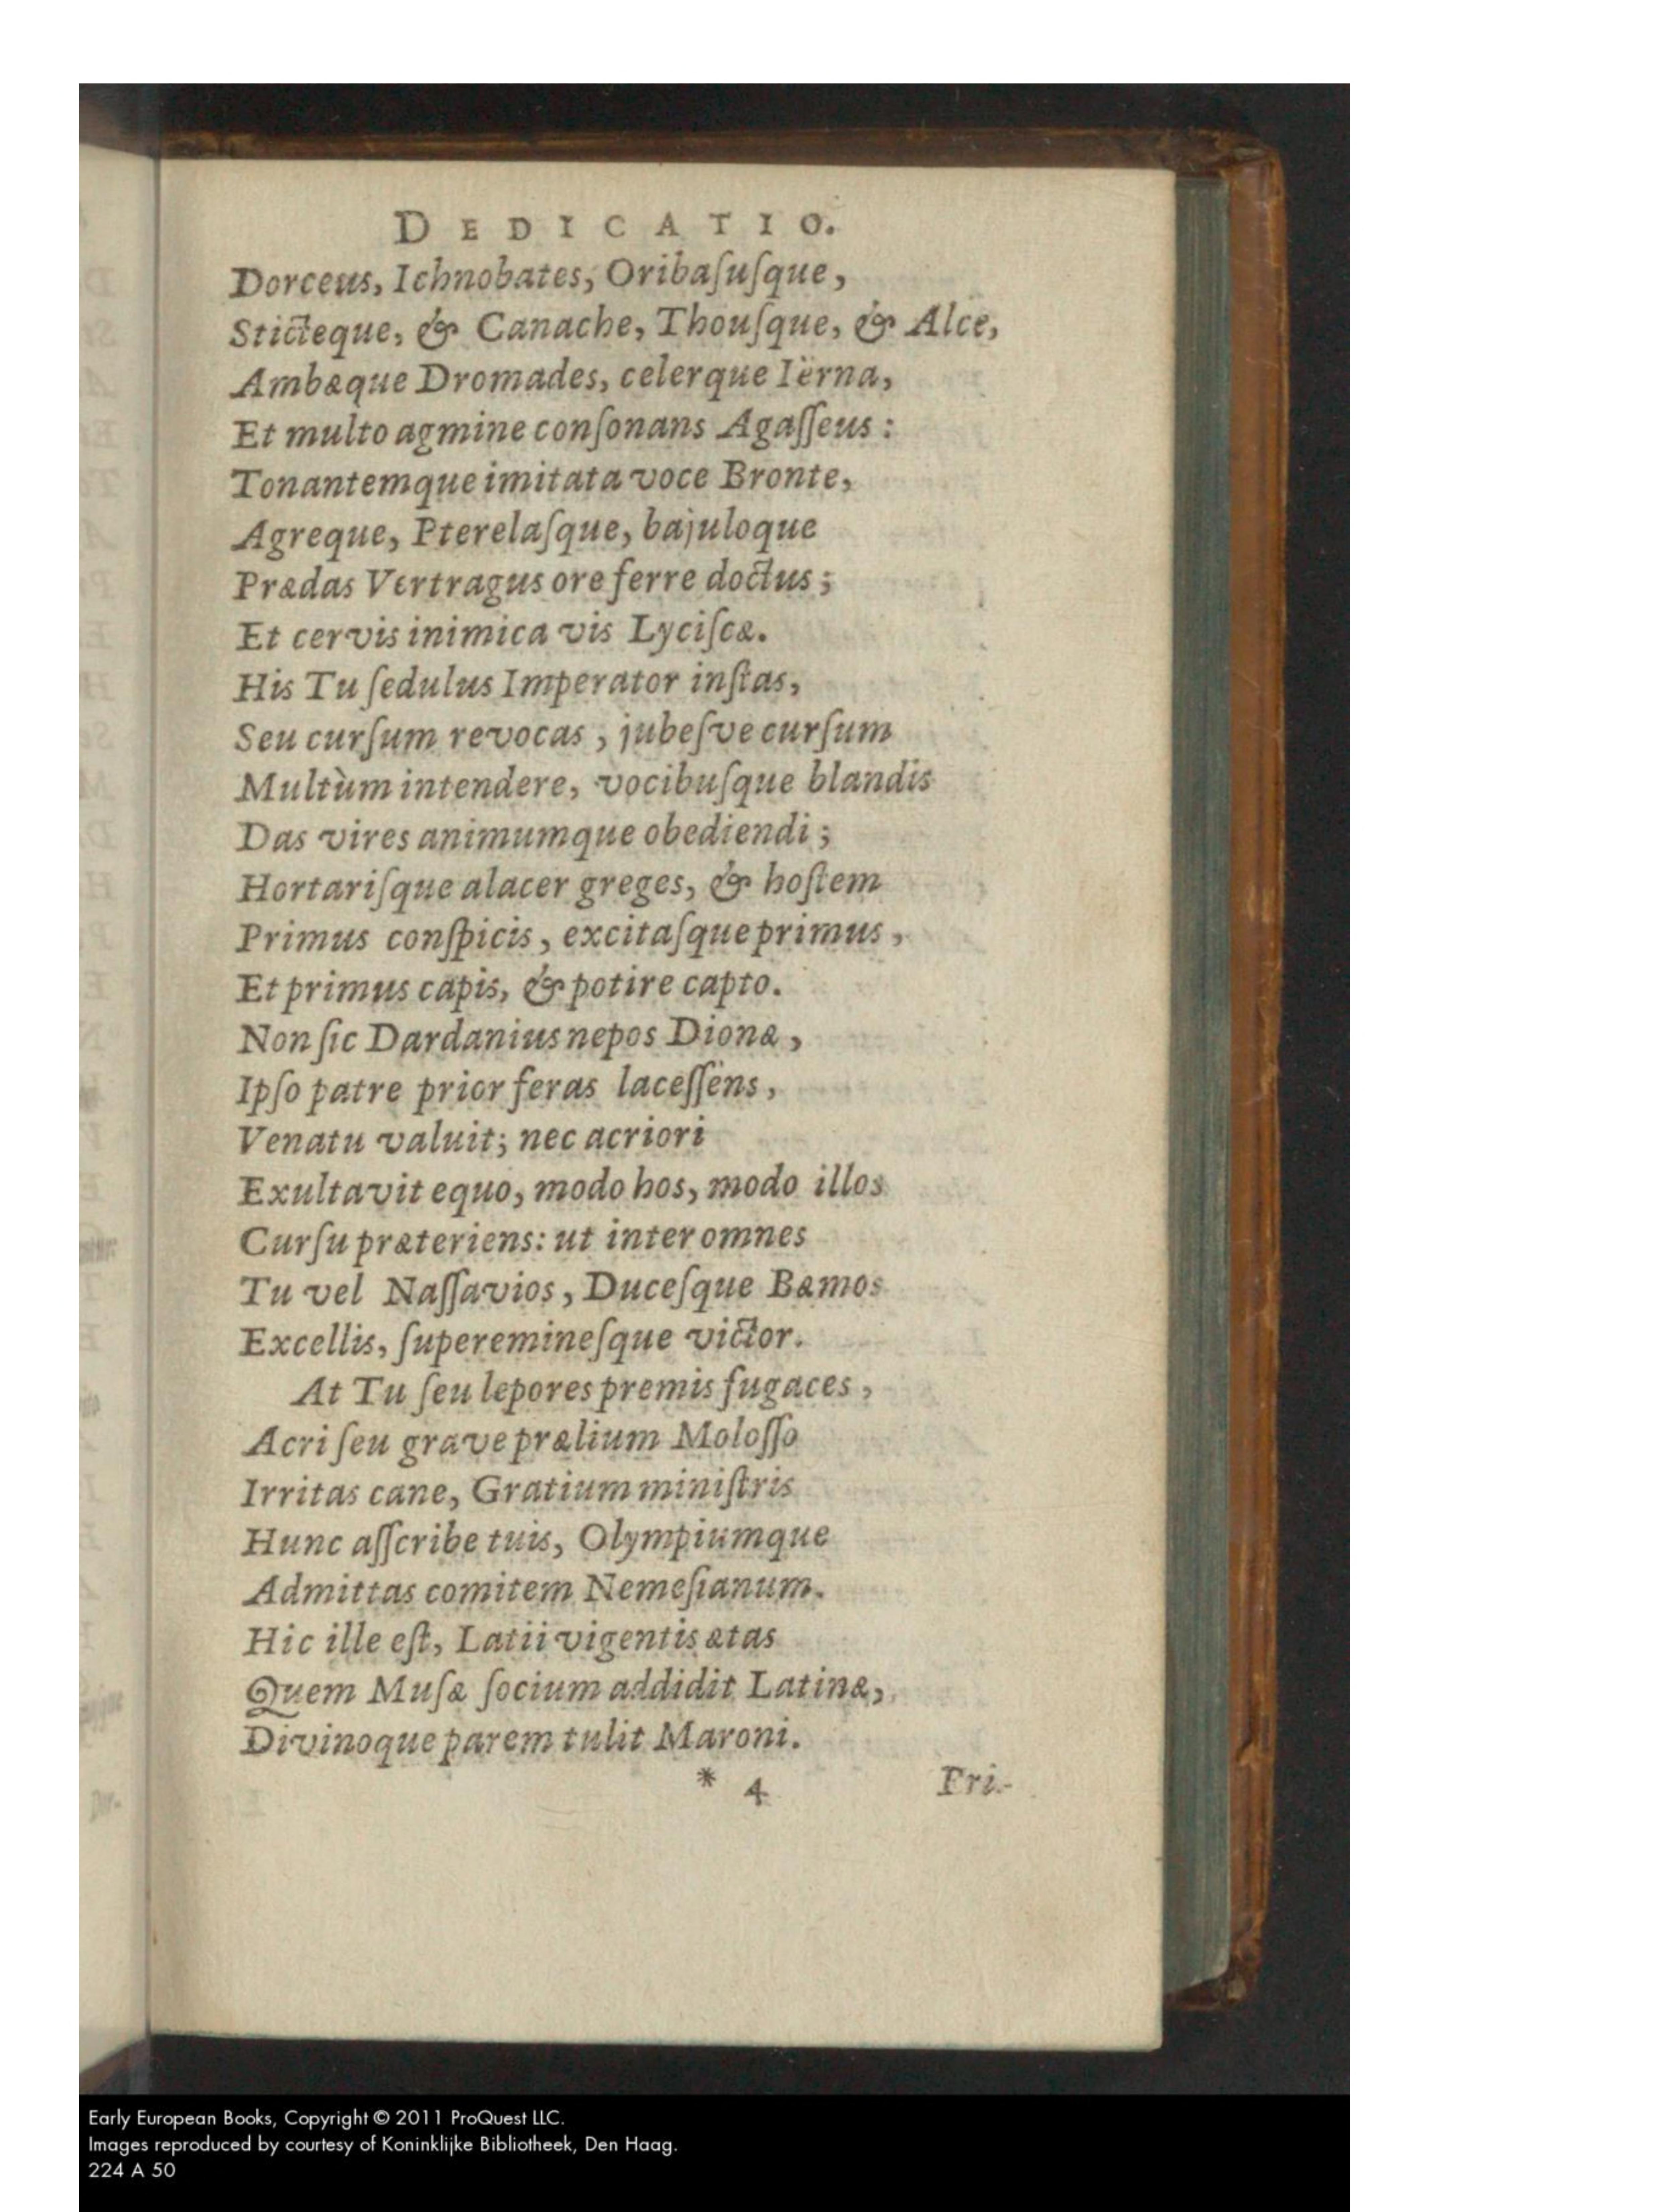 DEDICATIO.
Dorceus, Ichnobates, Oribaſuſque,
Sticteque, & Canache, Thouſque, & Alce,
Ambæque Dromades, celerque Iërna,
Et multo agmine conſonans Agaſſeus:
Tonantemque imitata voce Bronte,
Agreque, Pterelaſque, bajuloque
Prædas Vertragus ore ferre doctus;
Et cervis inimica vis Lyciſcæ.
His Tu ſedulus Imperator inſtas,
Seu curſum revocas, jubeſve curſum
Multùm intendere, vocibuſque blandis
Das vires animumque obediendi;
Hortariſque alacer greges, & hoſtem
Primus conſpicis, excitaſque primus,
Et primus capis, & potire capto.
Non ſic Dardanius nepos Dionæ,
Ipſo patre prior feras laceſſens,
Venatu valuit; nec acriori
Exultavit equo, modo hos, modo illos
Curſu præteriens: ut inter omnes
Tu vel Naſſavios, Duceſque Bæmos
Excellis, ſupereminesſque victor.
At Tu ſeu lepores premis fugaces,
Acri ſeu grave prælium Moloſſo
Irritas cane, Gratium miniſtris
Hunc aſſcribe tuis, Olympiumque
Admittas comitem Nemeſianum.
Hic ille eſt, Latii vigentis ætas
Quem Muſæ ſocium addidit Latinæ,
Divinoque parem tulit Maroni.
* 4 Fri-
Early European Books, Copyright © 2011 ProQuest LLC.
Images reproduced by courtesy of Koninklijke Bibliotheek, Den Haag.
224 A 50